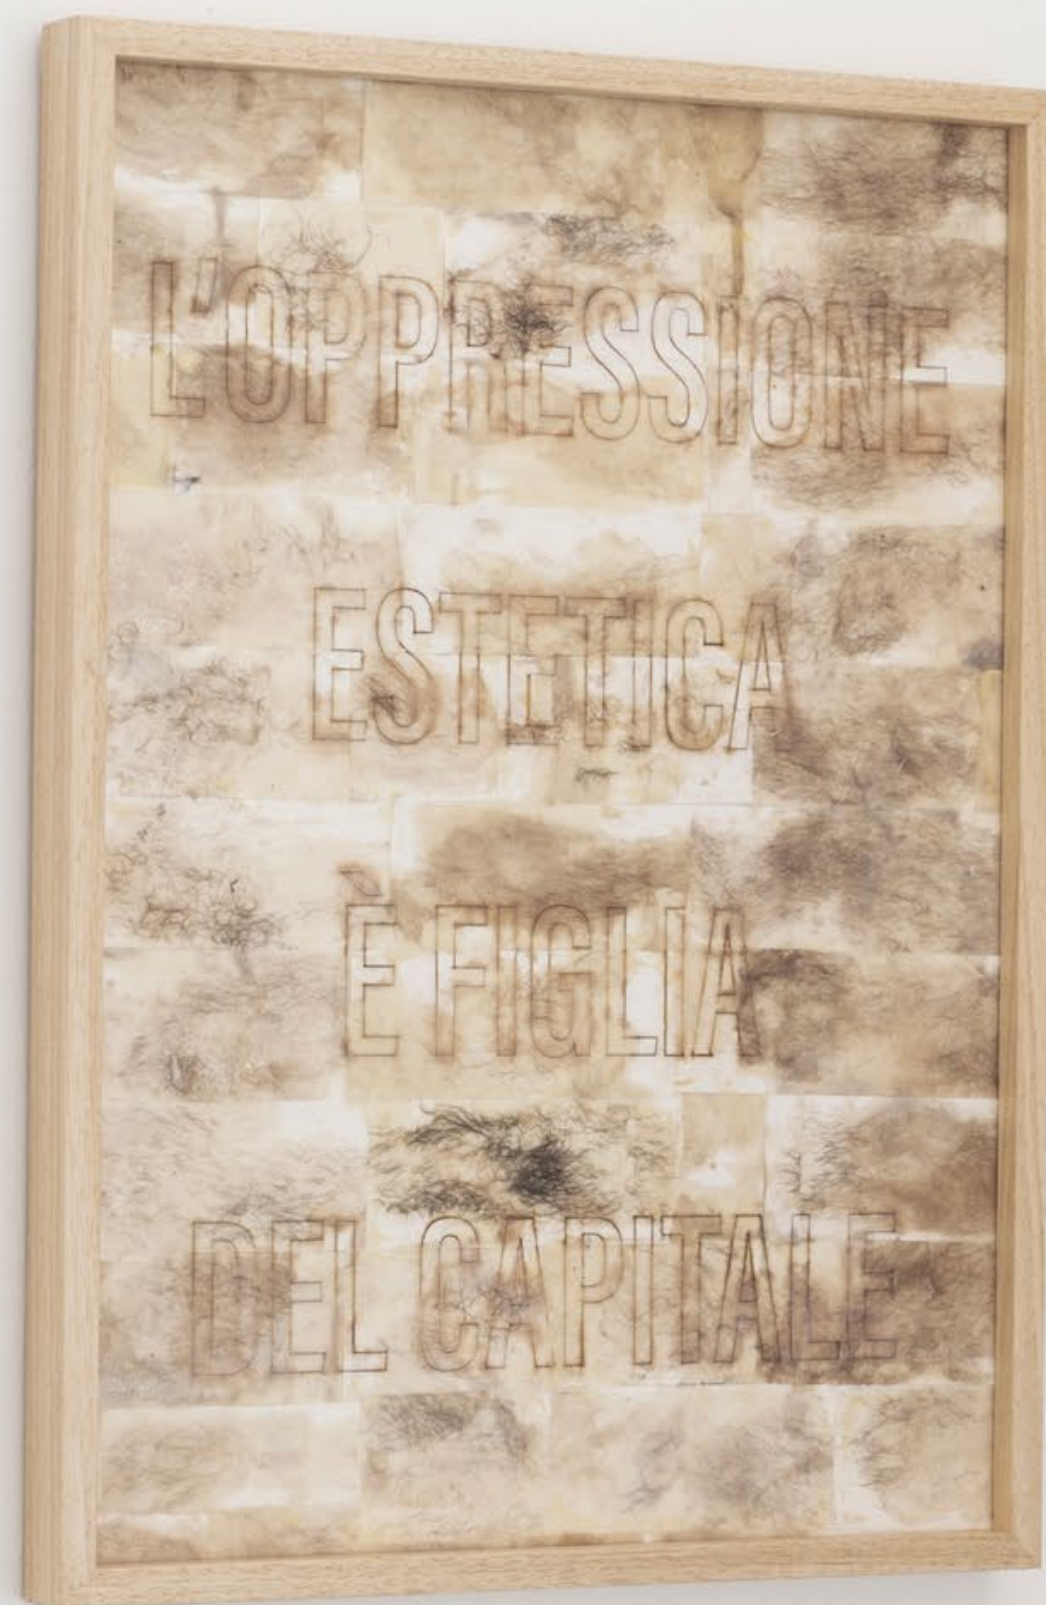 L'OPPRESSIONE
ESTETICA
È FIGLIA
DEL CAPITALE